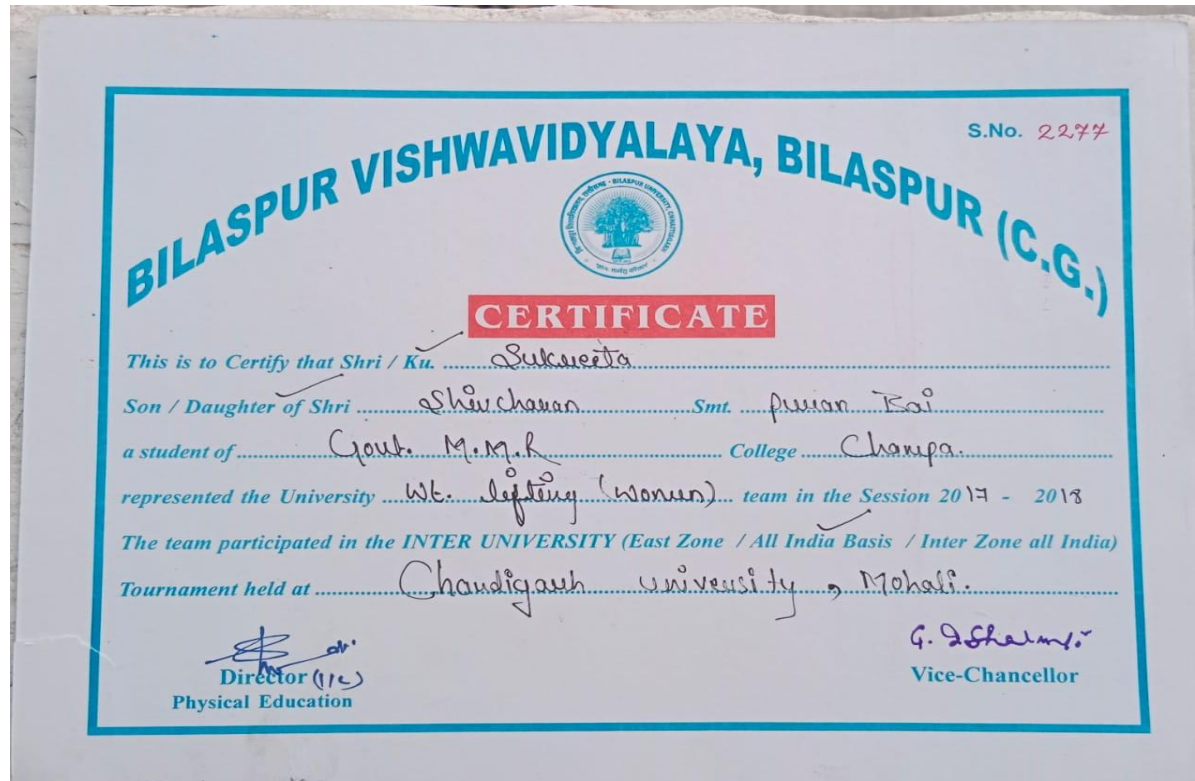 S.No. 2277
BILASPUR VISHWAVIDYALAYA, BILASPUR (C.G.)
CERTIFICATE
This is to Certify that Shri / Ku. Sukueeta
Son / Daughter of Shri Shiv charan Smt. puran Bai
a student of Gout. M.M.R College Champa.
represented the University Wt. lifting (women) team in the Session 2017 - 2018
The team participated in the INTER UNIVERSITY (East Zone / All India Basis / Inter Zone all India)
Tournament held at Chandigarh university, Mohali.
Director (I/C)
Physical Education
G. D Sharma
Vice-Chancellor